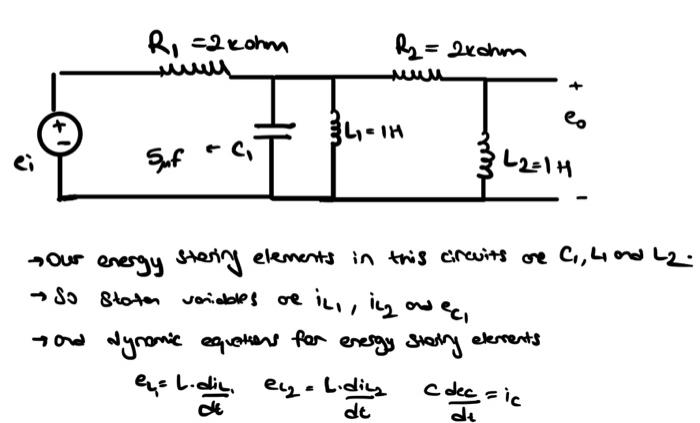 R₁ = 2kohm
R₂ = 2kohm
+
-
ei
5μf ← C₁
L₁ = 1H
+
eo
L₂=1H
-
→ Our energy storing elements in this circuits are C₁, L₁ and L₂.
→ So States variables are iL₁, iL₂ and eC₁
→ and dynamic equations for energy storing elements
eL₁ = L.diL₁/dt   eL₂ = L.diL₂/dt   C dec/dt = ic